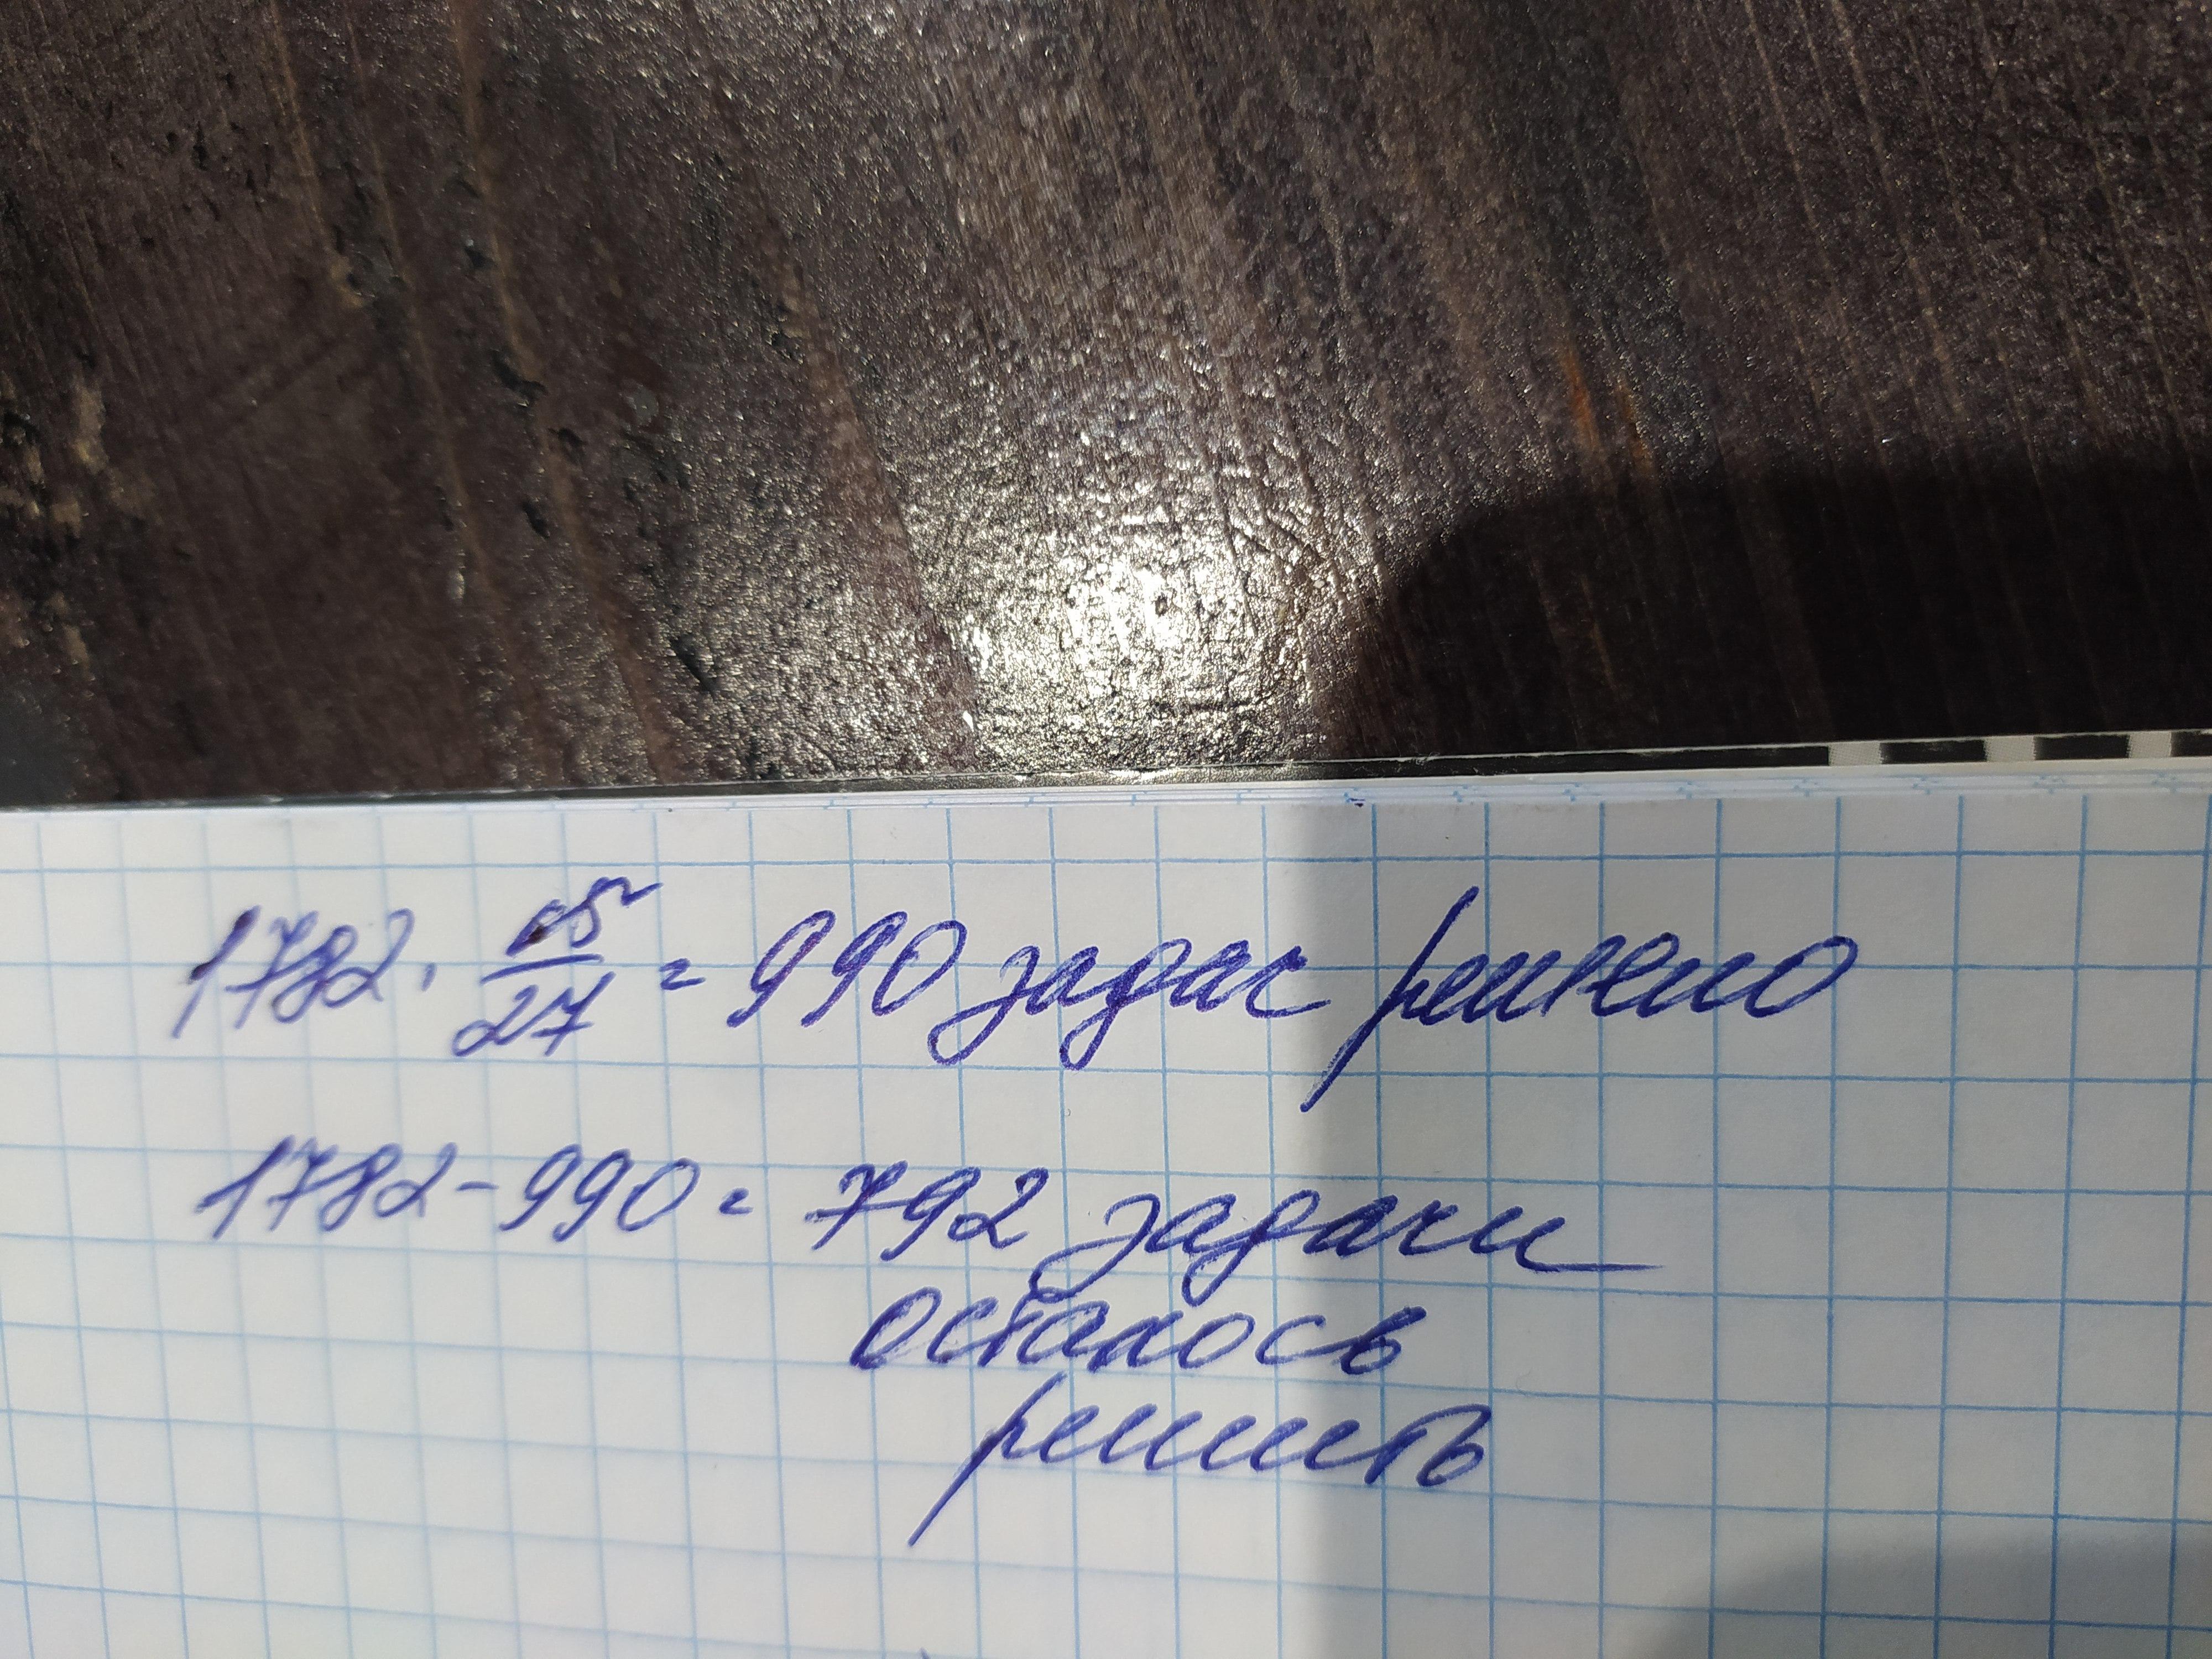 1782 · 15/27 = 990 задач решено
1782 - 990 = 792 задачи
осталось
решить